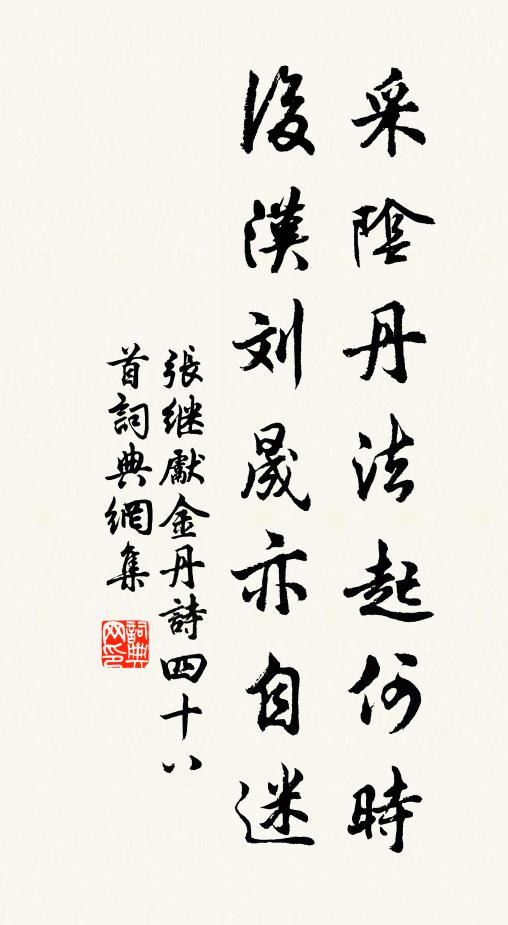 采陰丹法起何時
後漢刘晟亦自迷
張继獻金丹詩四十八
首詞典網集
詞典网印